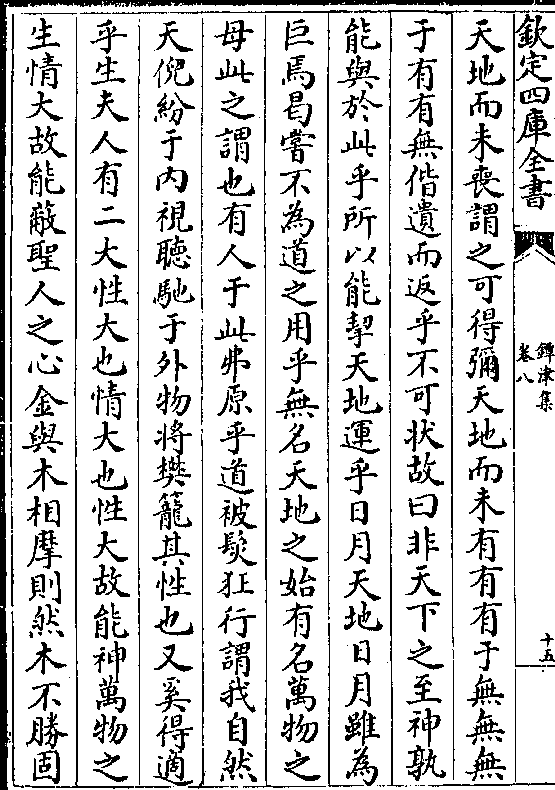 欽定四庫全書
鐔津集
卷八
十五
天地而未喪謂之可得彌天地而未有有有于無無無
于有有無偕遺而返乎不可狀故曰非天下之至神孰
能與於此乎所以能挈天地運乎日月天地日月雖為
巨焉曷嘗不為道之用乎無名天地之始有名萬物之
母此之謂也有人于此弗原乎道被髮狂行謂我自然
天倪紛于内視聽馳于外物將樊籠其性也又奚得適
乎生夫人有二大性大也情大也性大故能神萬物之
生情大故能蔽聖人之心金與木相摩則然木不勝固